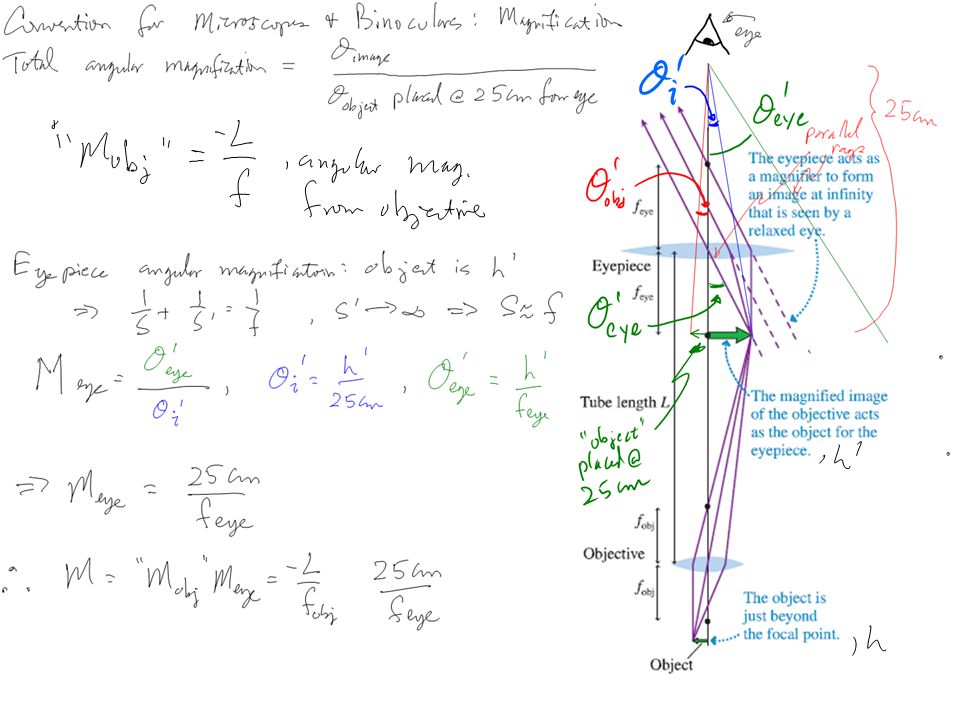 Convention for Microscopes & Binoculars: Magnification
Total angular magnification = θimage / θobject placed @ 25cm from eye
"Mobj" = -L/f , angular mag. from objective
Eyepiece angular magnification: object is h'
⇒ 1/s + 1/s' = 1/f , s' → ∞ ⇒ s ≈ f
Meye = θ'eye/θi' , θi' = h'/25cm , θ'eye = h'/feye
⇒ Meye = 25cm/feye
∴ M = "Mobj" Meye = -L/fobj 25cm/feye
eye
θi'
θ'eye
25cm
parallel rays
The eyepiece acts as
a magnifier to form
an image at infinity
that is seen by a
relaxed eye.
θ'obj
feye
Eyepiece
feye
θ'eye
Tube length L
The magnified image
of the objective acts
as the object for the
eyepiece. , h'
"object"
placed @
25cm
fobj
Objective
fobj
The object is
just beyond
the focal point. , h
Object